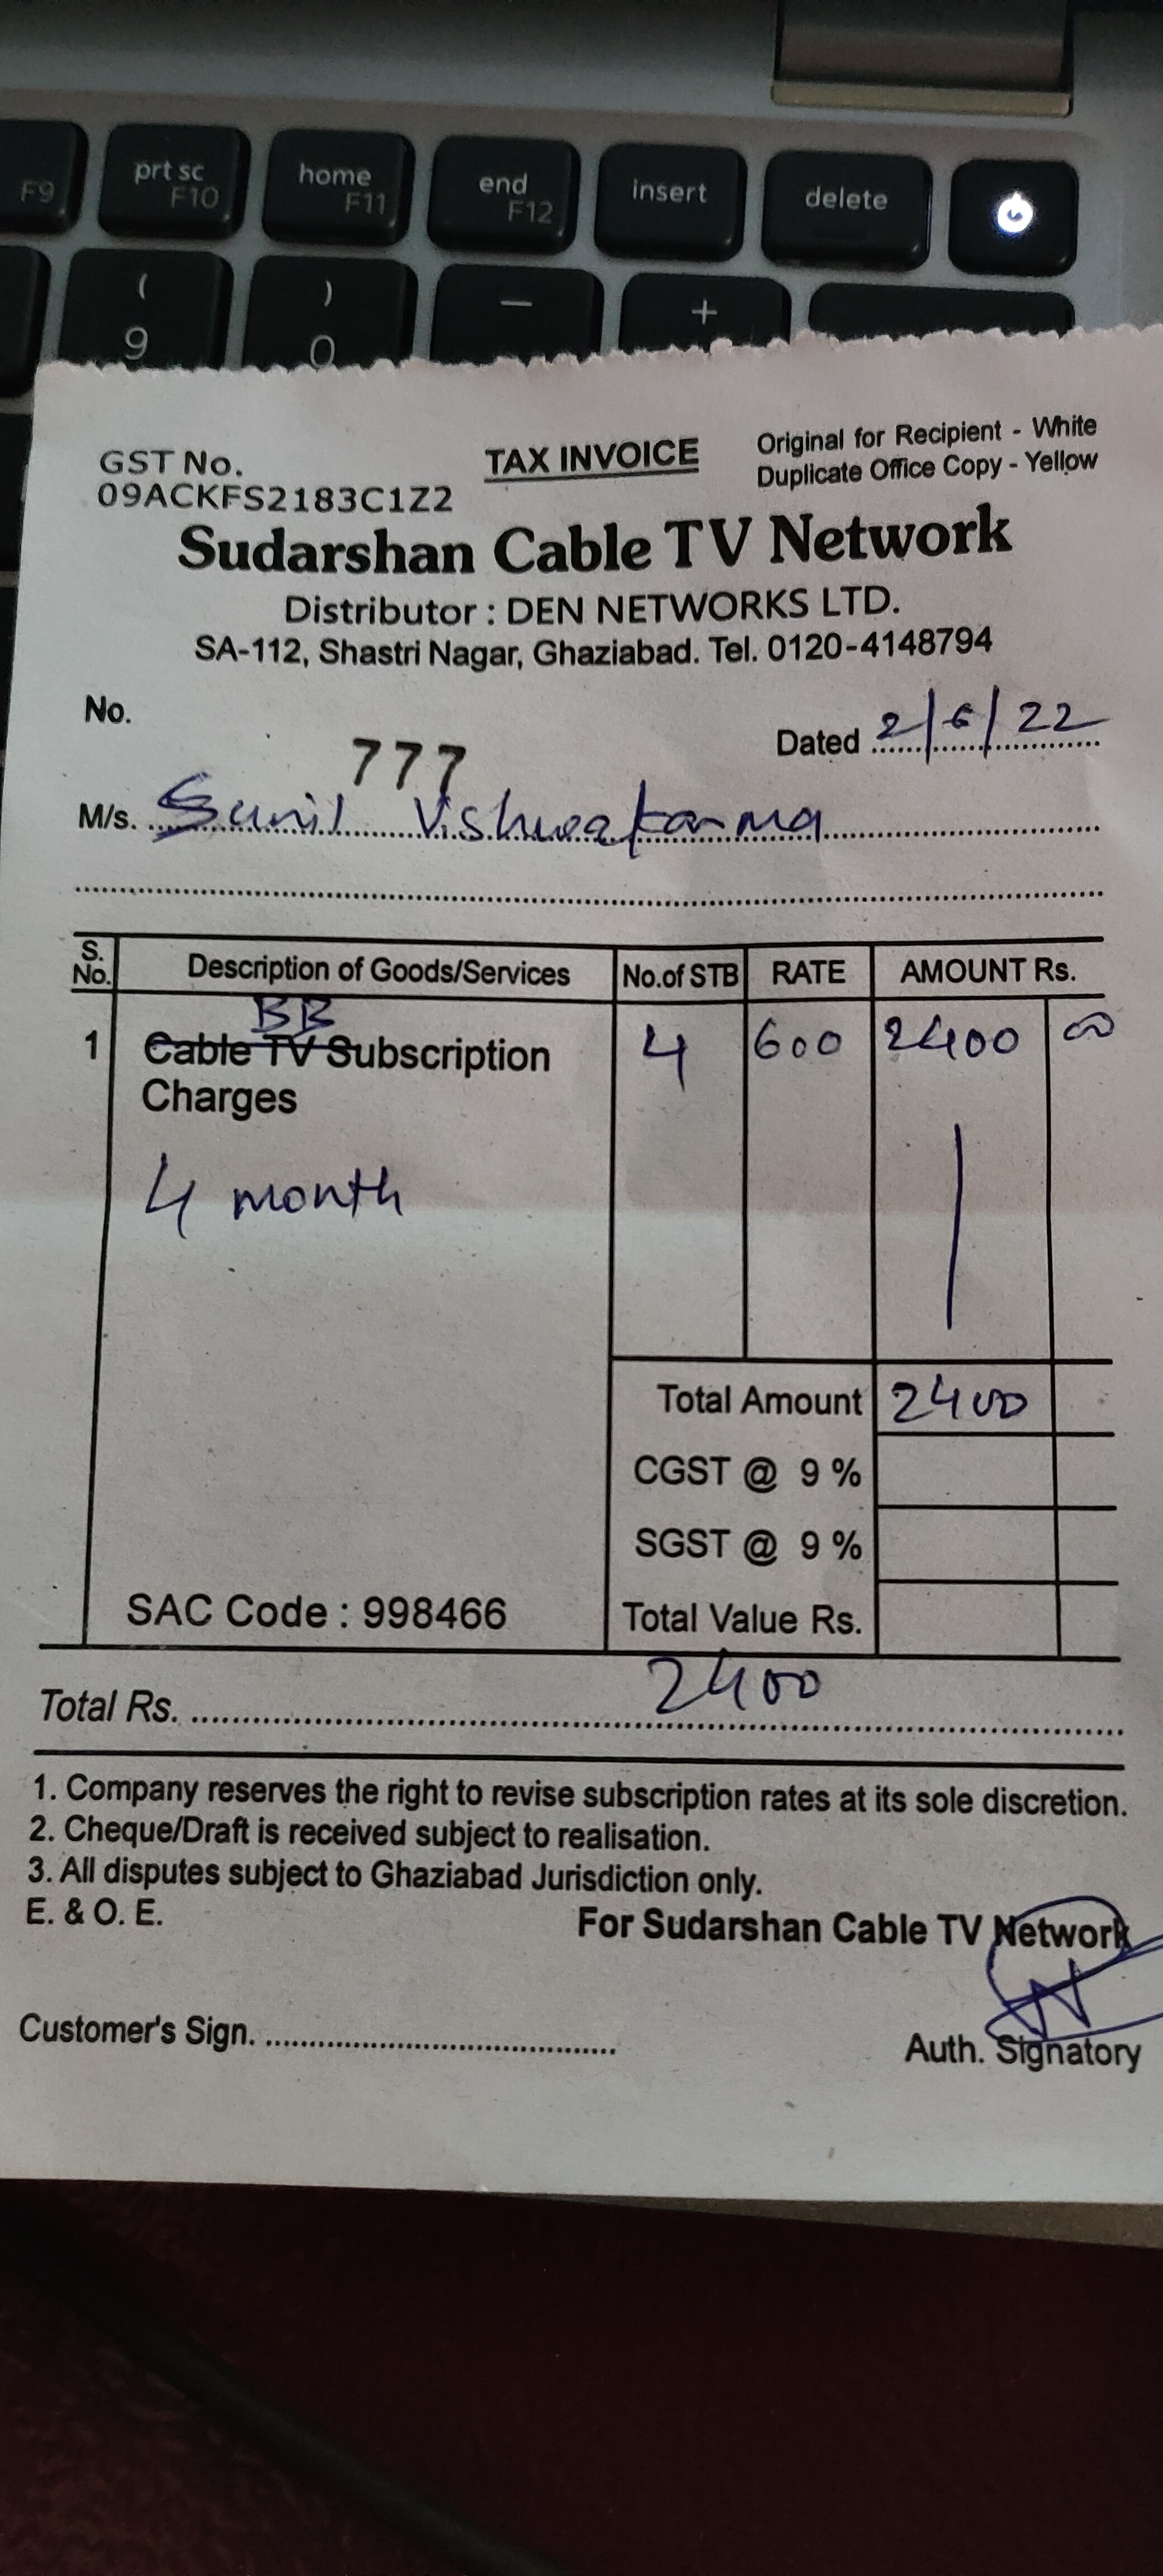 F9 prt sc F10 home F11 end F12 insert delete
( 9 ) 0 — +
GST No. TAX INVOICE Original for Recipient - White
09ACKFS2183C1Z2 Duplicate Office Copy - Yellow
Sudarshan Cable TV Network
Distributor : DEN NETWORKS LTD.
SA-112, Shastri Nagar, Ghaziabad. Tel. 0120-4148794
No. 777 Dated 2/6/22
M/s. Sunil Vishwakarma
S. No. Description of Goods/Services No.of STB RATE AMOUNT Rs.
BB
1 Cable TV Subscription 4 600 2400 00
Charges
4 month
Total Amount 2400
CGST @ 9 %
SGST @ 9 %
SAC Code : 998466 Total Value Rs.
Total Rs. 2400
1. Company reserves the right to revise subscription rates at its sole discretion.
2. Cheque/Draft is received subject to realisation.
3. All disputes subject to Ghaziabad Jurisdiction only.
E. & O. E.
For Sudarshan Cable TV Network
Customer's Sign. Auth. Signatory